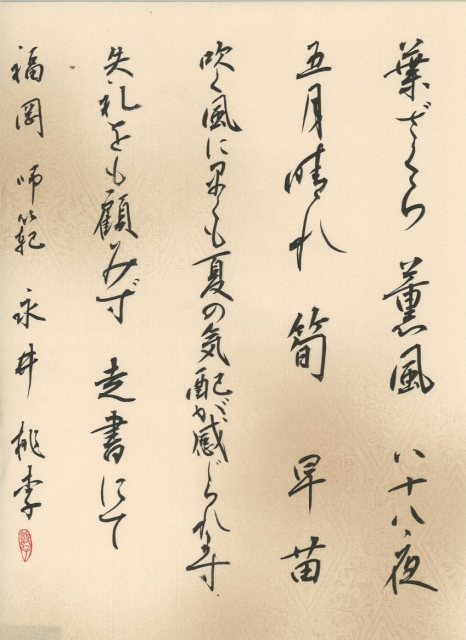 葉ざくら 薫風 八十八夜
五月晴れ 筍 早苗
吹く風に早くも夏の気配が感じられます
失礼をも顧みず 走書にて
福岡 師範 永井 桃李